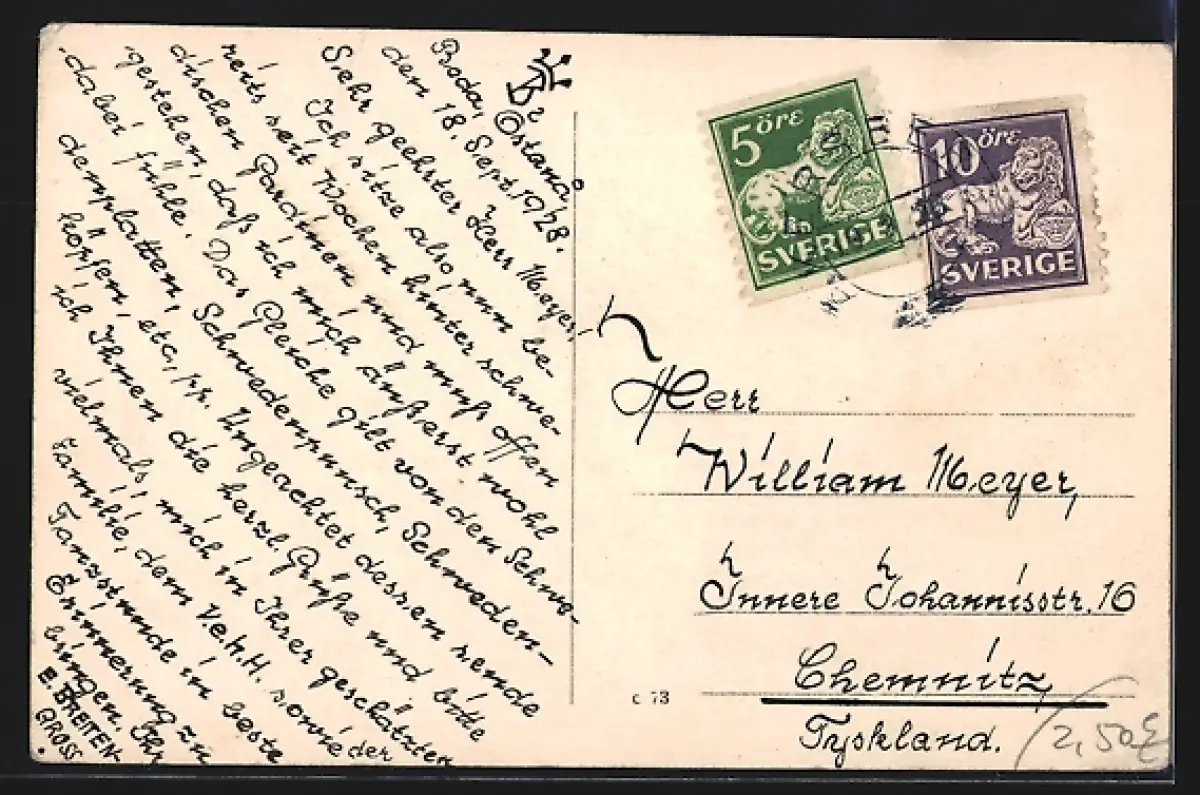 Boda, Östanå,
den 18. Sept. 1928.
Sehr geehrter Herr Meyer,
Ich sitze also nun be-
reits seit Wochen hinter schwe-
dischen Gardinen und muß offen
gestehen, daß ich mich äußerst wohl
dabei fühle. Das Gleiche gilt von den Schwe-
denplatten, Schwedenpunsch, Schweden-
köpfen, etc. pp. Ungeachtet dessen sende
ich Ihnen die herzl. Grüße und bitte
vielmals, mich in Ihrer geschätzten
Familie, dem V.e.h.H. sowie der
Tanzstunde in beste
Erinnerung zu
bringen. Ihr
E. BREITEN-
GROSS
5 öre
SVERIGE
10 öre
SVERIGE
Herr
William Meyer,
Innere Johannisstr. 16
Chemnitz
Tyskland.
c 73
2,50